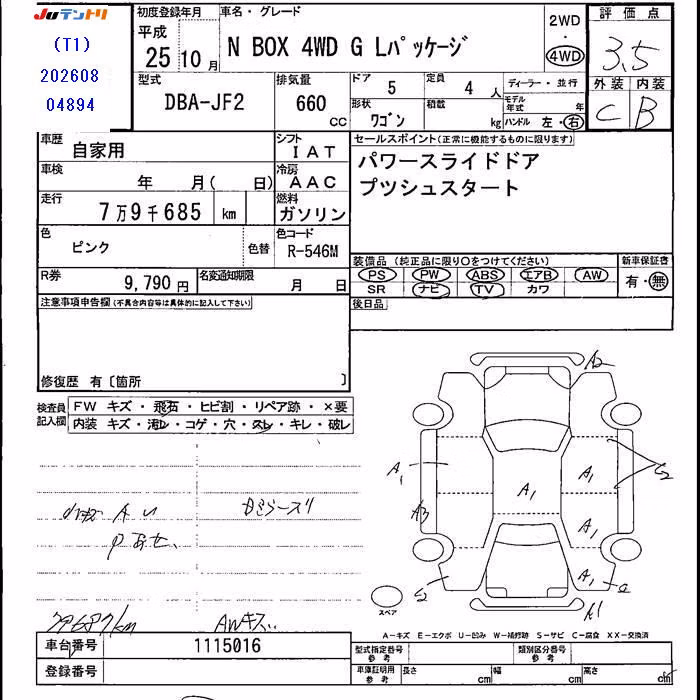 JUテントリ
(T1)
202608
04894
初度登録年月
平成
25年 10月
車名・グレード
N BOX 4WD G Lパッケージ
2WD
・
4WD
評価点
3.5
外装 内装
C B
型式
DBA-JF2
排気量
660
CC
ドア
5
定員
4人
形状
ワゴン
積載
kg
ディーラー・並行
モデル年式
年
ハンドル 左・右
車歴
自家用
シフト
IAT
車検
年 月( 日)
冷房
AAC
走行
7万9千685 km
燃料
ガソリン
色
ピンク
色替
色コード
R-546M
R券
9,790円
名変通知期限
月 日
セールスポイント(正常に機能するものに限ります)
パワースライドドア
プツシュスタート
装備品 (純正品に限り○をつけてください)
PS PW ABS エアB AW
SR ナビ TV カワ
新車保証書
有・無
後日品
注意事項申告欄(不具合内容等は具体的に記入して下さい)
修復歴 有〔箇所 〕
検査員記入欄
FW キズ・飛石・ヒビ割・リペア跡・×要
内装 キズ・汚レ・コゲ・穴・スレ・キレ・破レ
AWキズ
A2
A1
A3
A1
A1
A1
A1
A1
スペア
A-キズ E-エクボ U-凹み W-補修跡 S-サビ C-腐食 XX-交換済
車台番号
1115016
登録番号
型式指定番号
参考
類別区分番号
参考
車庫証明用
参考
長さ cm
幅 cm
高さ cm